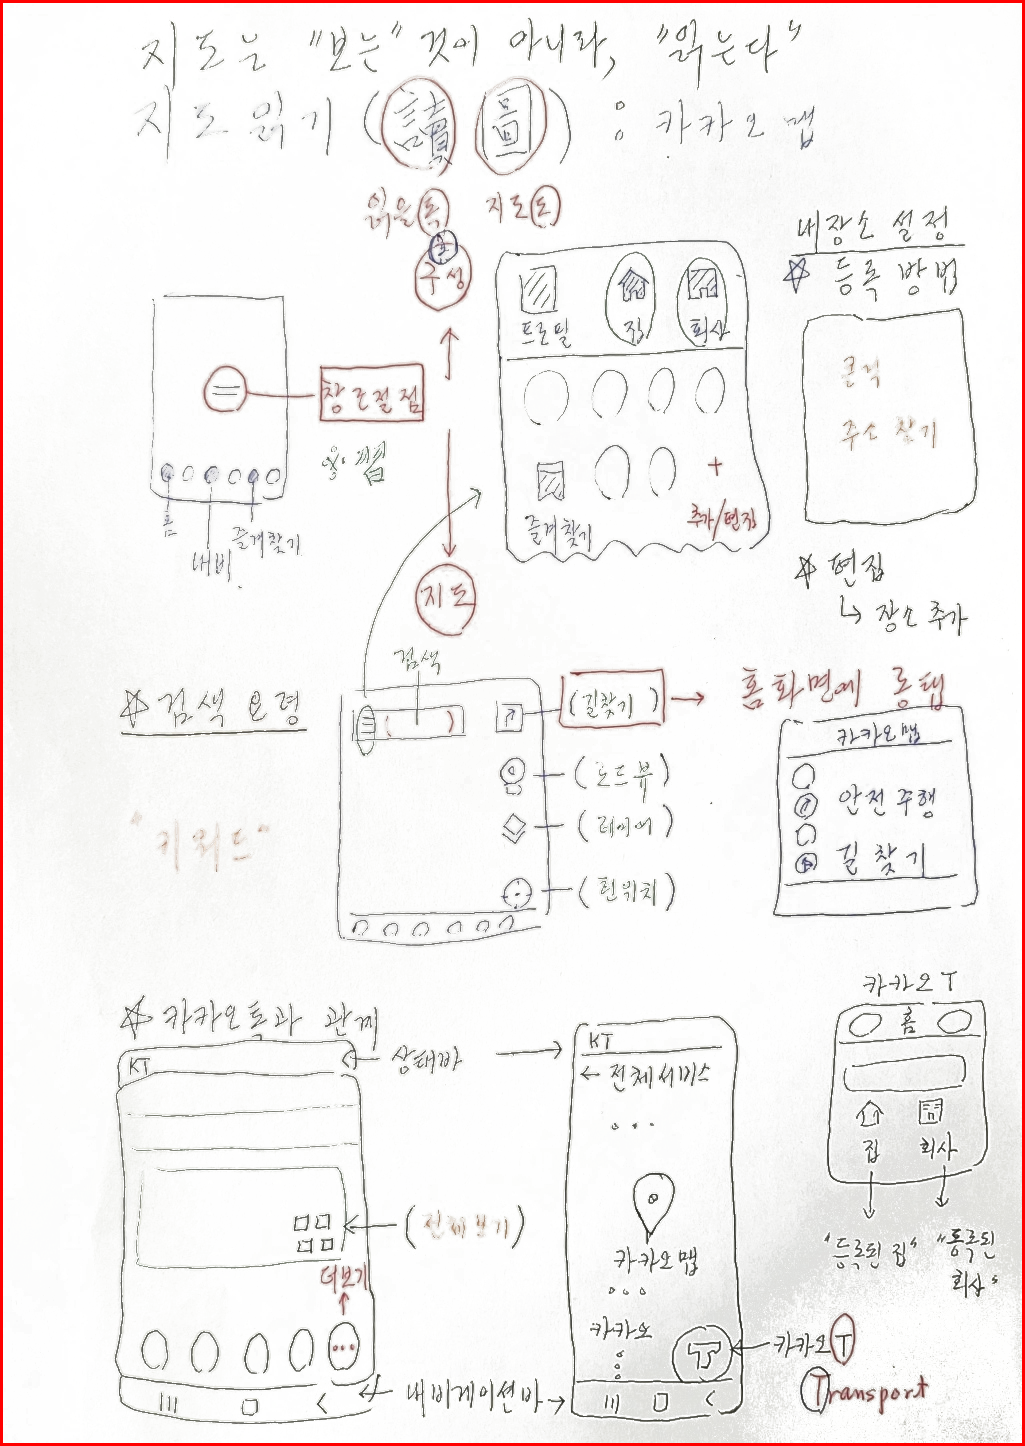 지도는 "보는" 것이 아니라, "읽는다"
지도읽기 (讀 圖) : 카카오맵
읽을 독 지도 도
구성
내장소 설정
☆ 등록 방법
프로필 집 회사
창조절점
클릭
주소 찾기
홈
내비
즐겨찾기
즐겨찾기
추가/편집
지도
☆ 편집
↳ 장소 추가
검색
☆ 검색 요령
"키워드"
(길찾기) → 홈화면에 롱탭
(로드뷰)
(레이어)
(현위치)
카카오맵
안전 주행
길 찾기
☆ 카카오톡과 관계
KT
상태바
(전체보기)
더보기
내비게이션바
KT
← 전체서비스
카카오맵
카카오
카카오 T
Transport
카카오 T
홈
집 회사
"등록된 집" "등록된 회사"